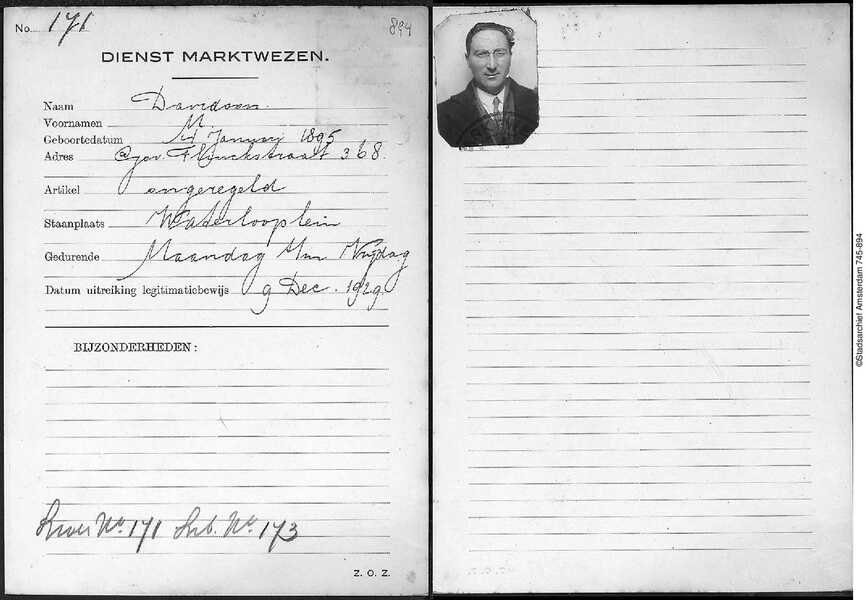 No. 171
894
DIENST MARKTWEZEN.
Naam Davidson
Voornamen M.
Geboortedatum 4 Januarij 1895
Adres Gov. Flinckstraat 368.
Artikel ongeregeld
Staanplaats Waterlooplein
Gedurende Maandag t/m Vrijdag
Datum uitreiking legitimatiebewijs 9 Dec. 1929.
BIJZONDERHEDEN:
No. 171 No. 173
Z. O. Z.
©Stadsarchief Amsterdam 745-894